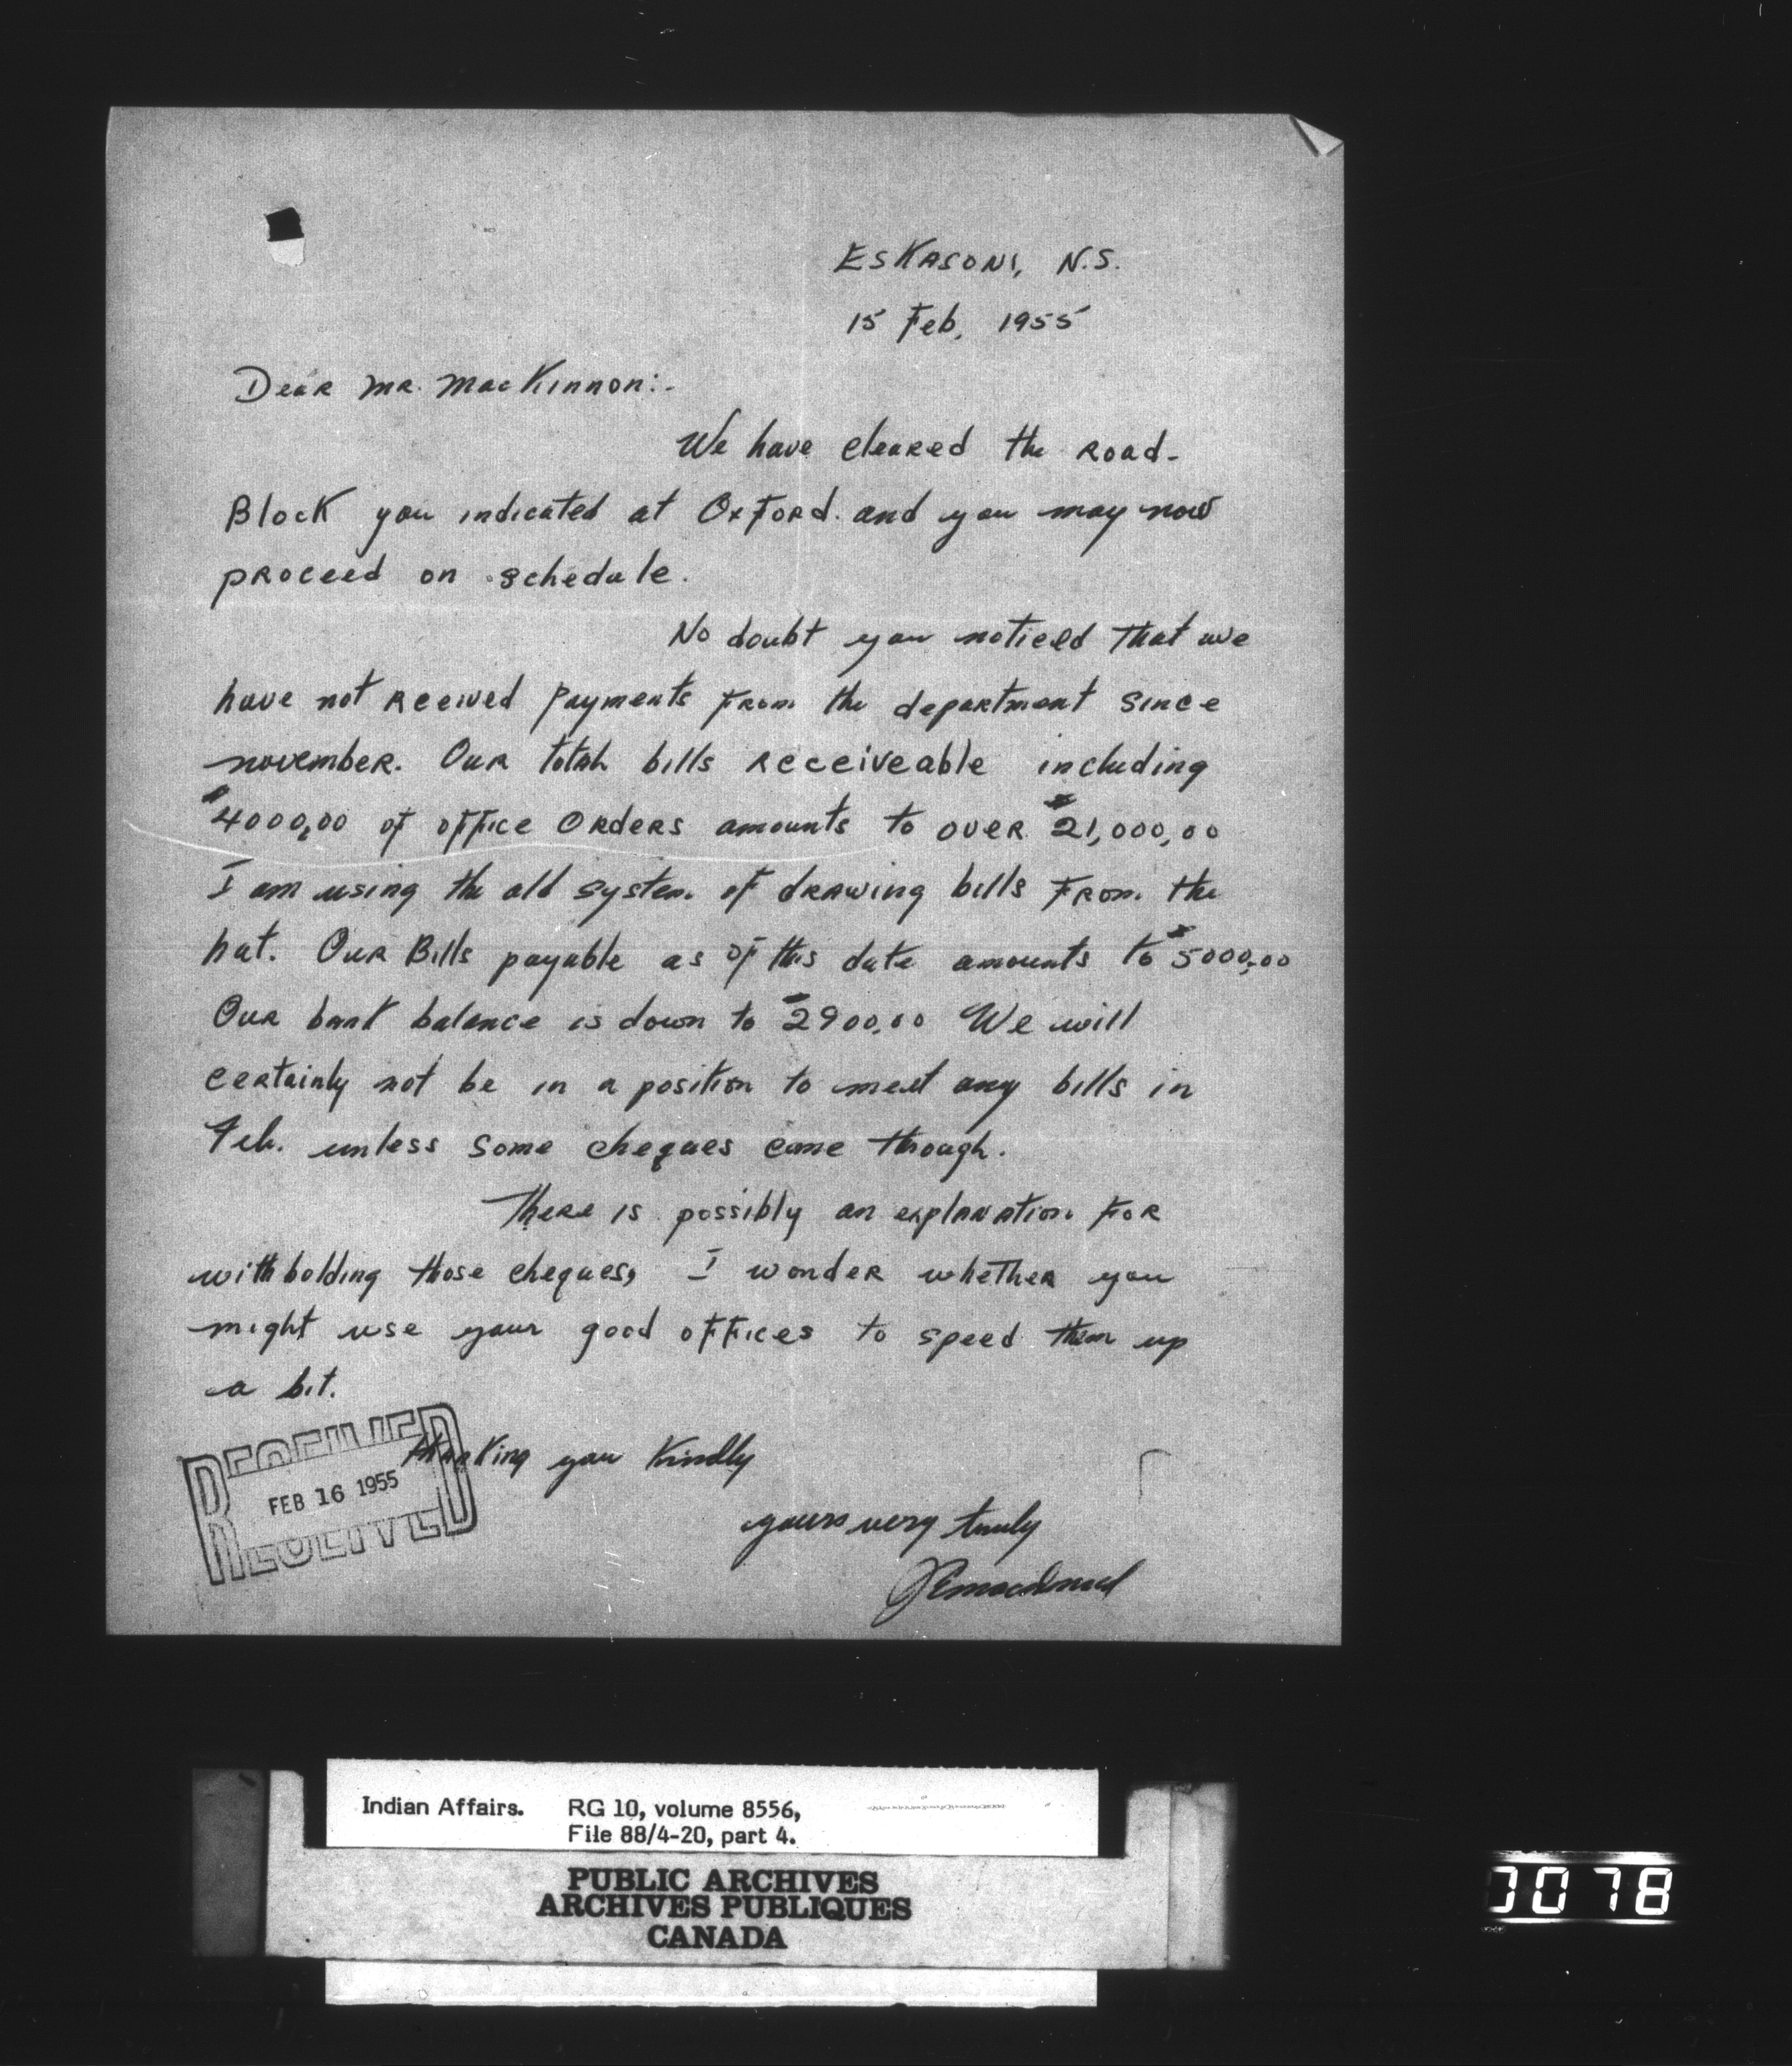 ESKASONI, N.S.
15 Feb, 1955
Dear Mr. MacKinnon:-
We have cleared the road-
Block you indicated at Oxford. and you may now
proceed on schedule.
No doubt you noticed that we
have not received payments from the department since
november. Our total bills receiveable including
$4000,00 of office orders amounts to over $21,000,00
I am using the old system of drawing bills from the
hat. Our Bills payable as of this date amounts to $5000,00
Our bank balance is down to $2900.00 We will
certainly not be in a position to meet any bills in
Feb. unless some cheques come through.
There is possibly an explanation for
withholding those cheques, I wonder whether you
might use your good offices to speed them up
a bit.
thanking you kindly
yours very truly
RECEIVED
FEB 16 1955
RECEIVED
Indian Affairs. RG 10, volume 8556,
File 88/4-20, part 4.
PUBLIC ARCHIVES
ARCHIVES PUBLIQUES
CANADA
0078